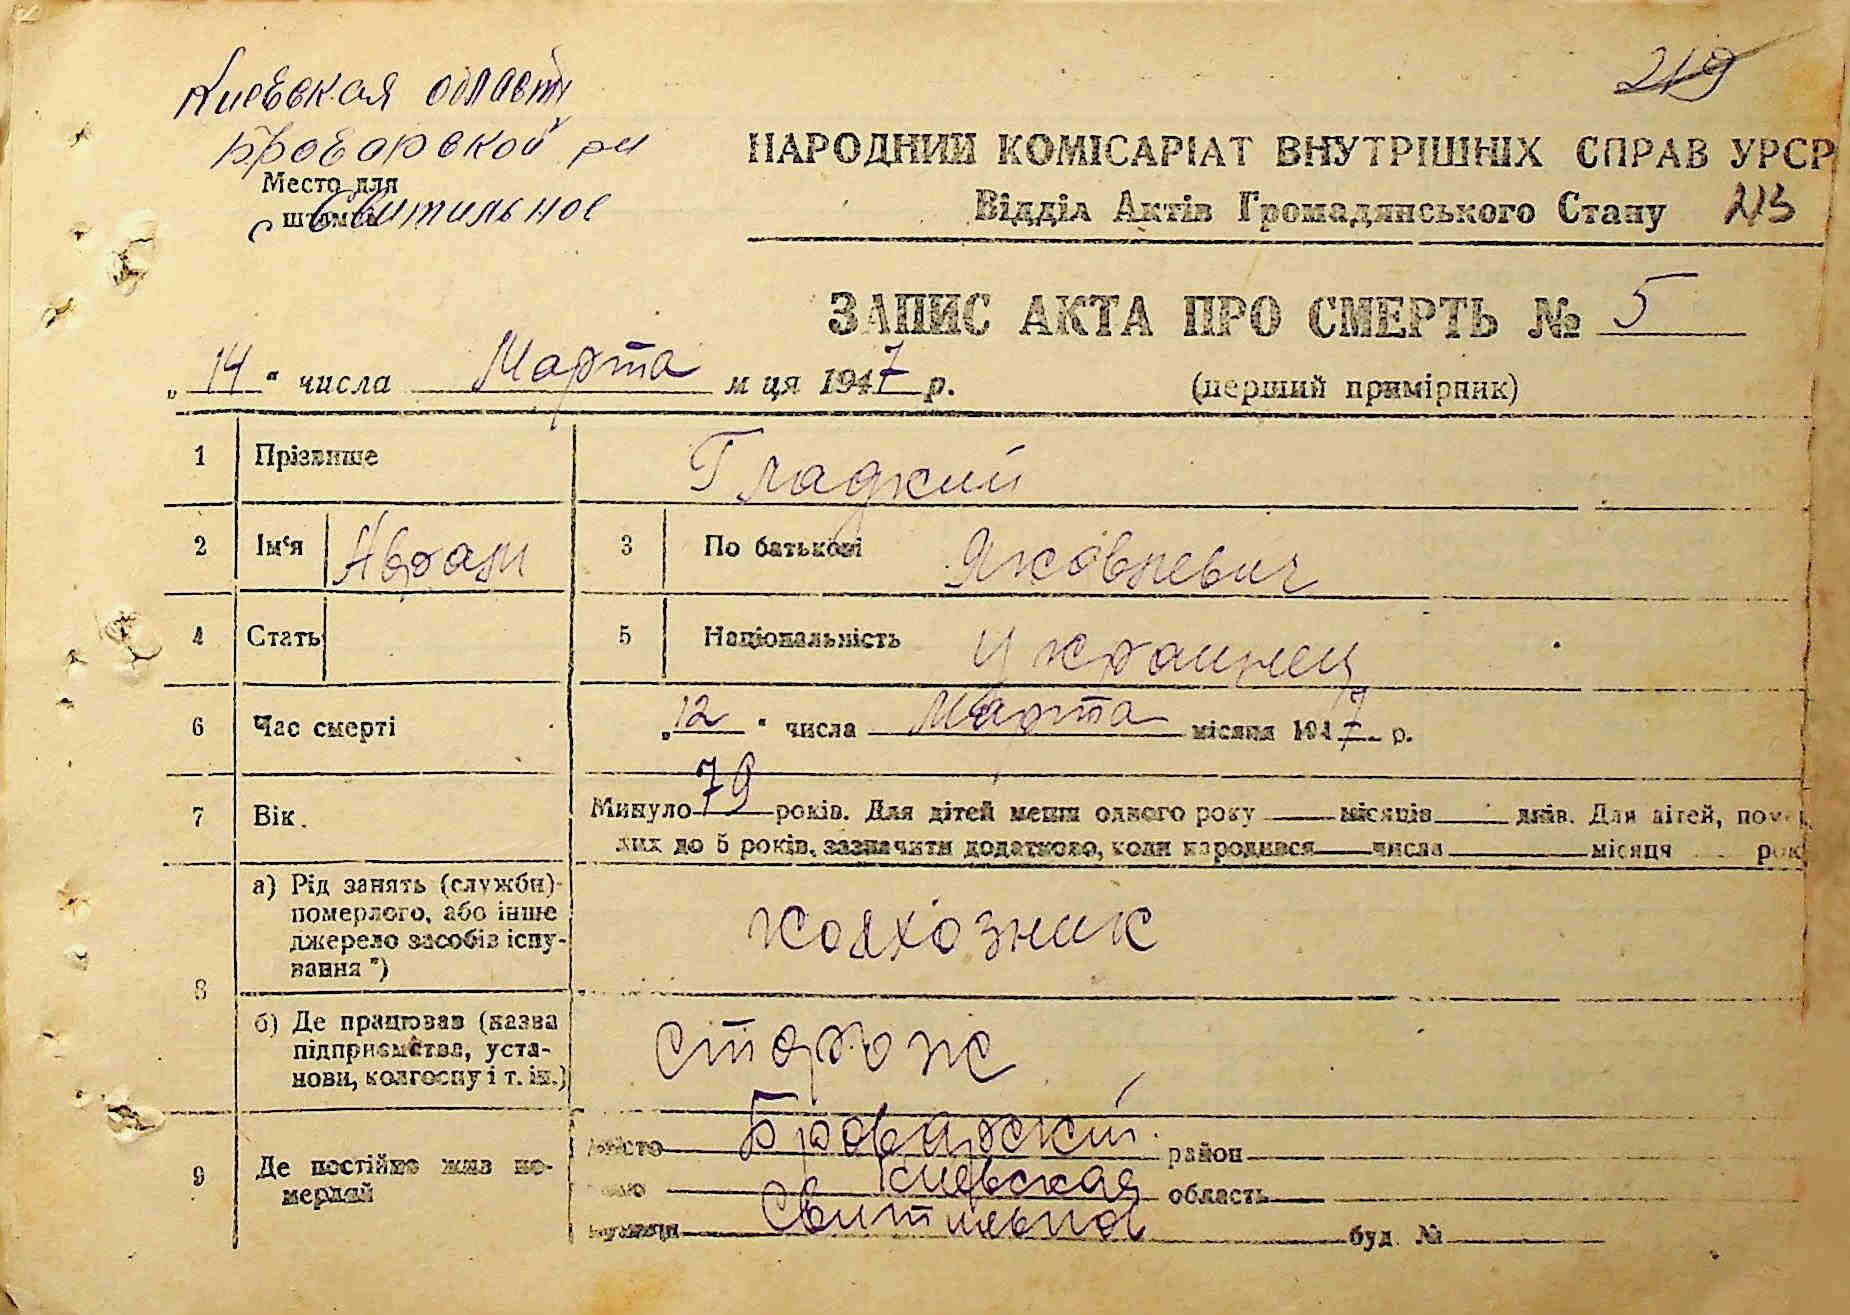 219
Киевская область
Броварской рн
НАРОДНИЙ КОМІСАРІАТ ВНУТРІШНІХ СПРАВ УРСР
Место для
штампа
с Свитильное
Відділ Актів Громадянського Стану 213
ЗАПИС АКТА ПРО СМЕРТЬ № 5
„14“ числа Марта м ця 1947 р.
(перший примірник)
1 Прізвище Гладкий
2 Ім‘я Аврам 3 По батькові Яковлевич
4 Стать 5 Національність украинец
6 Час смерті „12“ числа Марта місяця 1947 р.
7 Вік. Минуло 79 років. Для дітей менш одного року місяців днів. Для дітей, помер
лих до 5 років, зазначити додатково, коли народився числа місяця рок
8 а) Рід занять (служби)
померлого, або інше
джерело засобів існу-
вання *)
колхозник
б) Де працював (назва
підприємства, уста-
нови, колгоспу і т. ін.)
сторож
9 Де постійно жив по-
мерлий
місто Броварский район
Киевская область
Свитильное буд. №